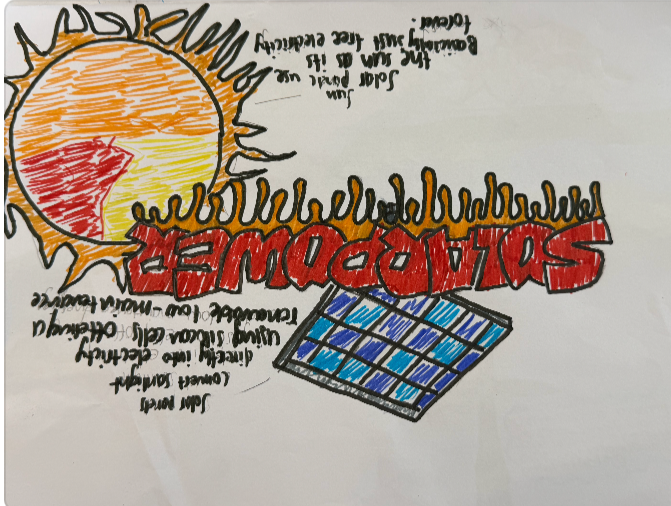 Solar panels
convert sunlight
directly into electricity
using silicon cells offering a
renewable low maintenance
SOLAR POWER
Sun
Solar use
the sun as its
Basically just free electricity
forever.